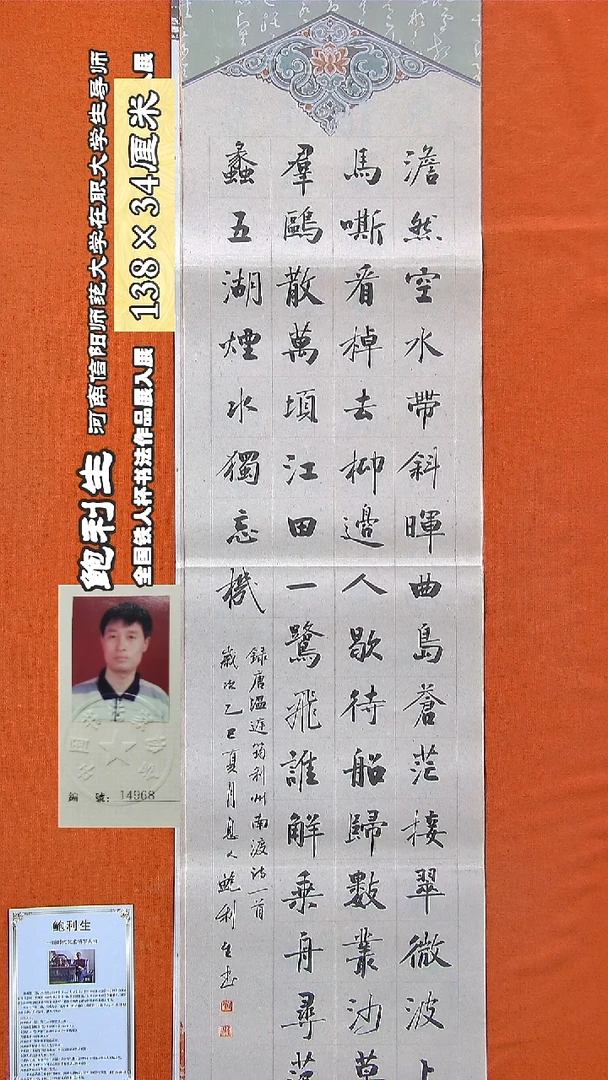 澹然空水帶斜暉曲島蒼茫接翠微波上
馬嘶看棹去柳邊人歇待船歸數叢沙草
羣鷗散萬頃江田一鷺飛誰解乘舟尋范
蠡五湖煙水獨忘機
録唐溫庭筠利州南渡詩一首
歲次乙巳夏月息人鮑利生书
鲍利生 河南信阳师范大学在职大学生导师
全国铁人杯书法作品展入展 138×34厘米
編 號: 14968
鲍利生